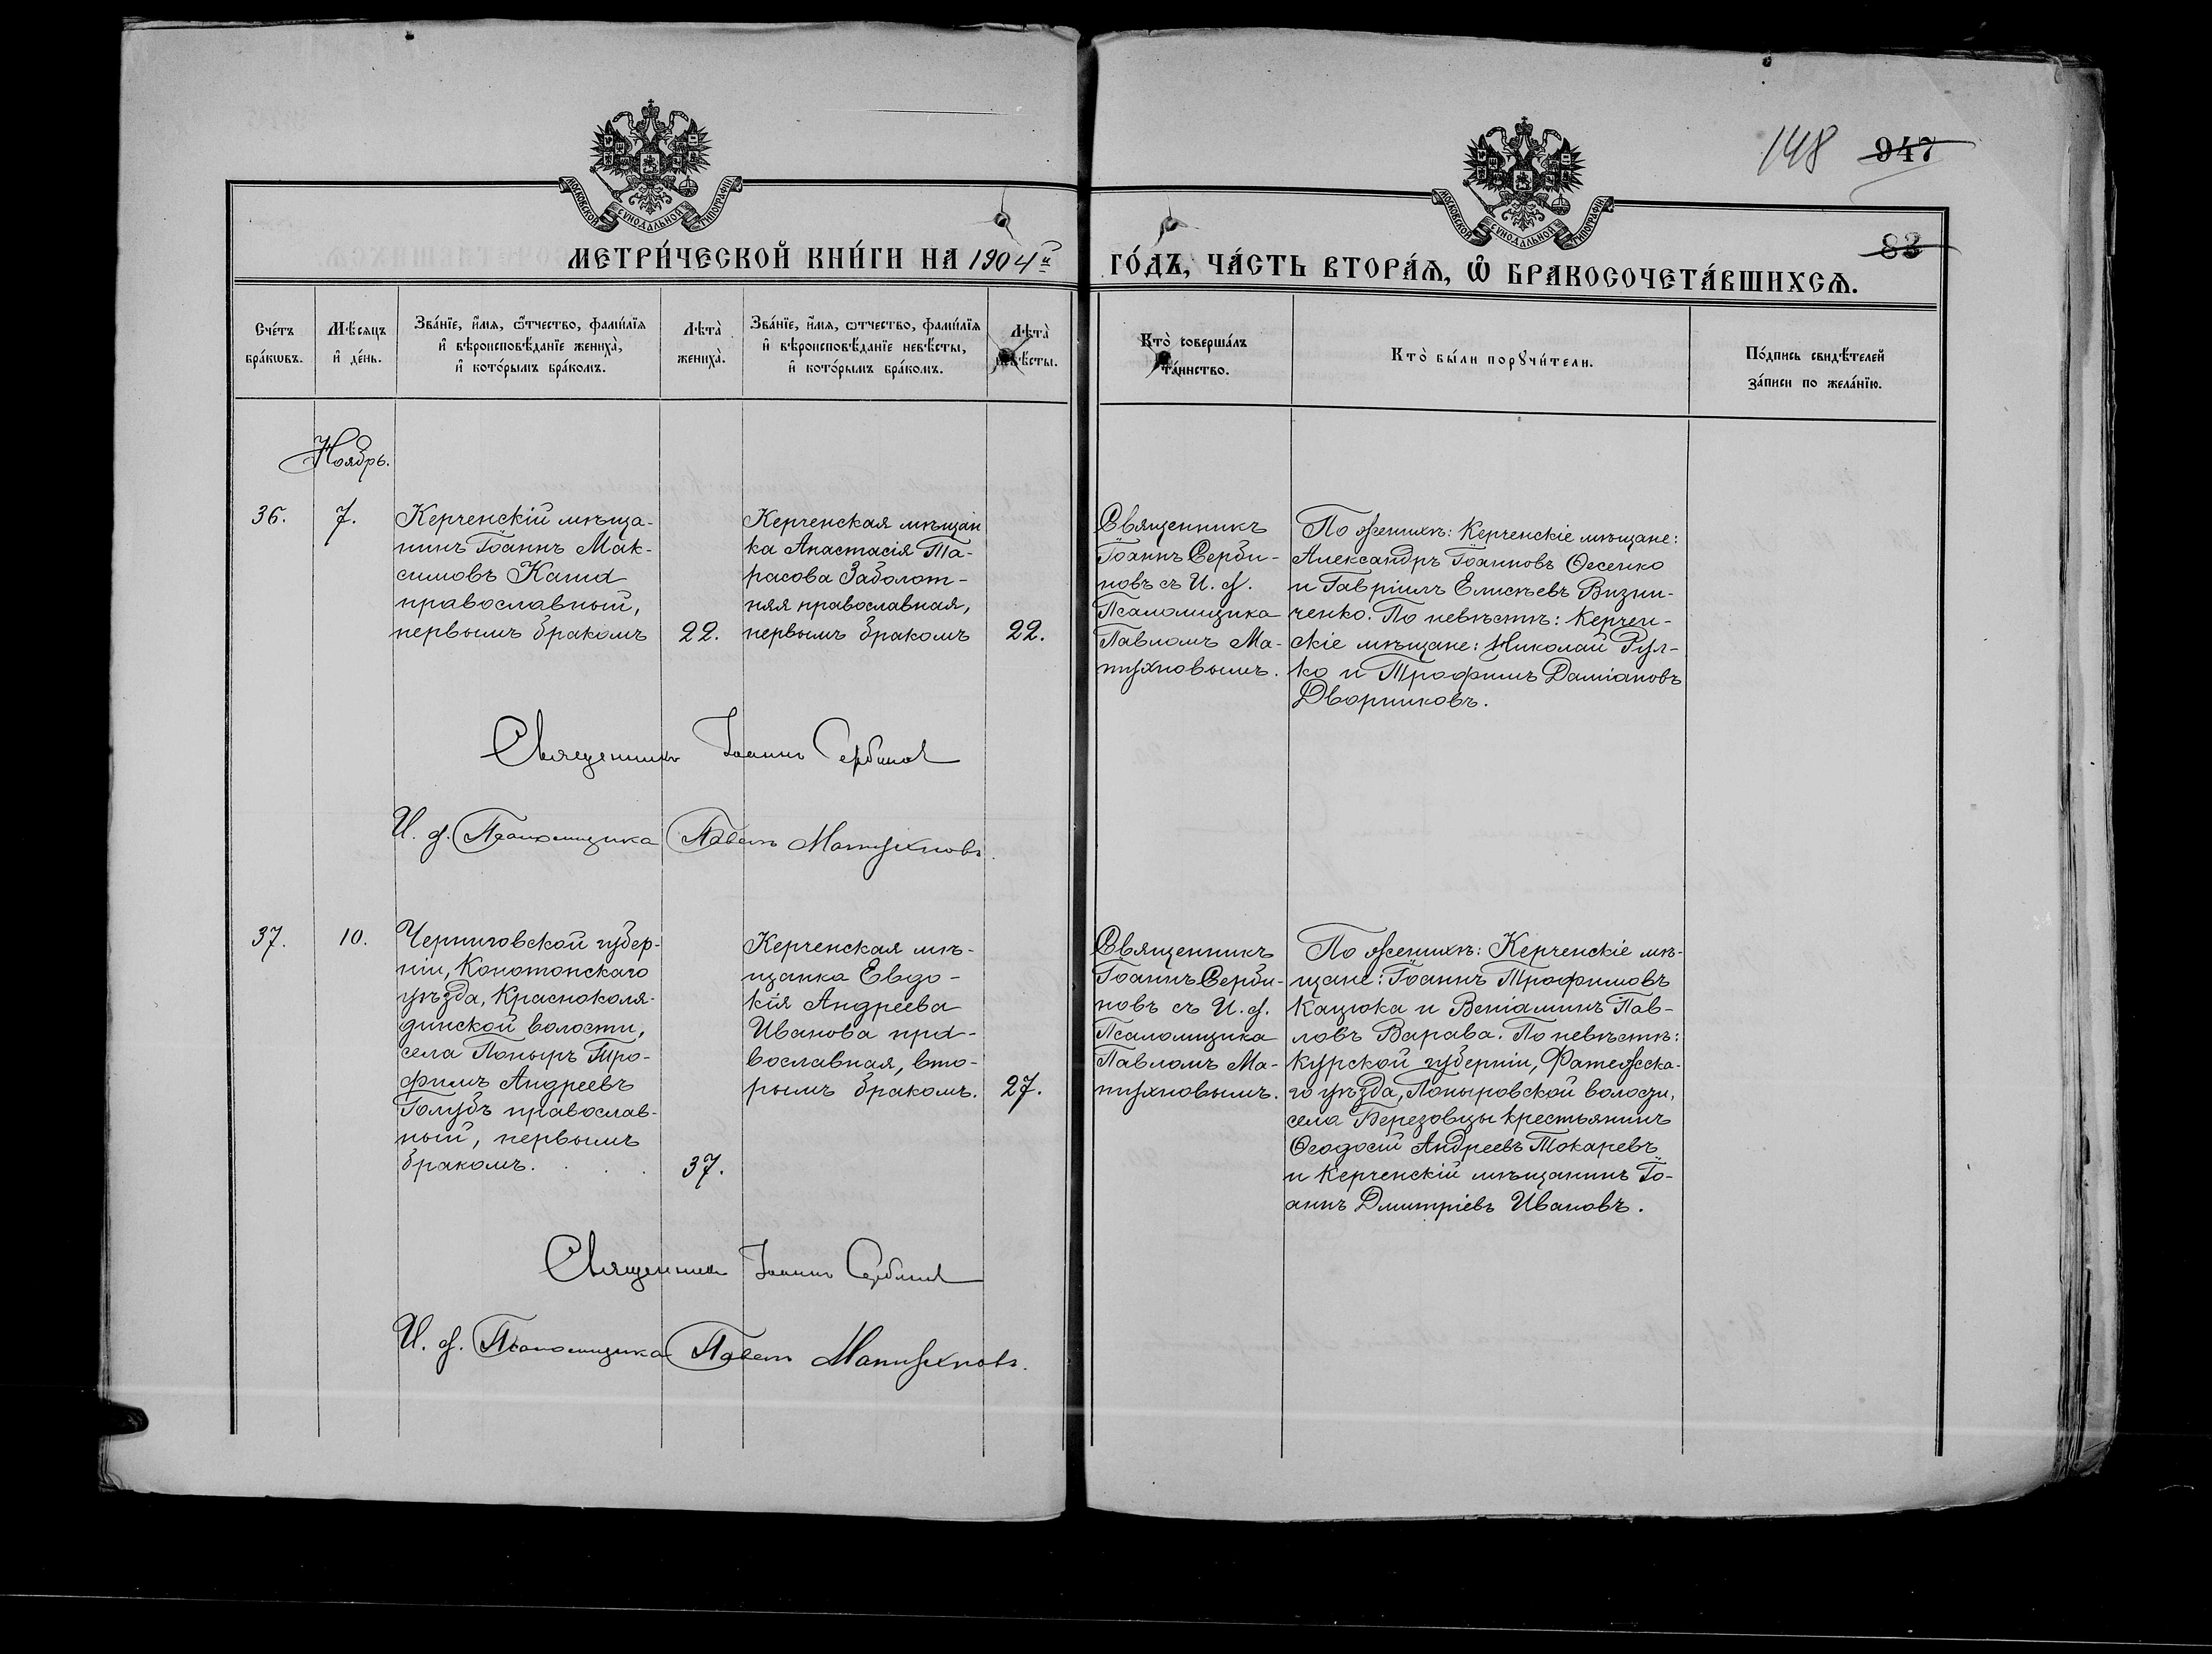 148 947
МОСКОВСКОЙ СУНОДАЛЬНОЙ ТИПОГРАФІИ
МОСКОВСКОЙ СУНОДАЛЬНОЙ ТИПОГРАФІИ
МЕТРИ́ЧЕСКОЙ КНИ́ГИ НА 1904й
ГО́ДЪ, ЧА́СТЬ ВТОРА́Ѧ, Ѽ БРАКОСОЧЕТА́ВШИХСѦ.
83
Сче́тъ
бра́кѡвъ.
Мѣ́сяцъ
и҆ де́нь.
Зва́нїе, и҆́мя, ѻ҆́тчество, фами́лїя
и҆ вѣроисповѣ́данїе жениха̀,
и҆ кото́рымъ бра́комъ.
Лѣта̀
жениха̀.
Зва́нїе, и҆́мя, ѻтчество, фами́лїя
и҆ вѣроисповѣ́данїе невѣ́сты,
и҆ кото́рымъ бра́комъ.
Лѣта̀
невѣ́сты.
Кто̀ соверша́лъ
та́инство.
Кто̀ бы́ли порꙋчи́тели.
По́дпись свидѣ́телей
за́писи по жела́нїю.
Ноябрь.
36.
7.
Керченскій мѣща-
нинъ Іоаннъ Мак-
симовъ Каша
православный,
первымъ бракомъ
22.
Керченская мѣщан
ка Анастасія Та-
расова Заболот-
няя православная,
первымъ бракомъ
22.
Священникъ
Іоаннъ Серби-
новъ съ И. д.
Псаломщика
Павломъ Ма-
тухновымъ.
По женихѣ: Керченскіе мѣщане:
Александръ Іоанновъ Ѳесенко
и Гавріилъ Елисѣевъ Визни-
ченко. По невѣстѣ: Керчен-
скіе мѣщане: Николай Рул-
ко и Трофимъ Даміановъ
Дворниковъ.
Священникъ Іоаннъ Сербинов
И. д. Псаломщика Павелъ Матухновъ.
37.
10.
Черниговской губер-
ніи, Конотопскаго
уѣзда, Красноколя-
динской волости,
села Попыръ Тро-
фимъ Андреевъ
Голубъ православ-
ный, первымъ
бракомъ.
37.
Керченская мѣ-
щанка Евдо-
кія Андреева
Иванова пра-
вославная, вто-
рымъ бракомъ.
27.
Священникъ
Іоаннъ Серби-
новъ съ И. д.
Псаломщика
Павломъ Ма-
тухновымъ.
По женихѣ: Керченскіе мѣ-
щане: Іоаннъ Трофимовъ
Кацюка и Веніаминъ Пав-
ловъ Варава. По невѣстѣ:
Курской губерніи, Фатежска-
го уѣзда, Поныровской волости,
села Березовцы крестьянинъ
Ѳеодосій Андреевъ Токаревъ
и Керченскій мѣщанинъ Іо-
аннъ Дмитріевъ Ивановъ.
Священникъ Іоаннъ Сербинов
И. д. Псаломщика Павелъ Матухновъ.